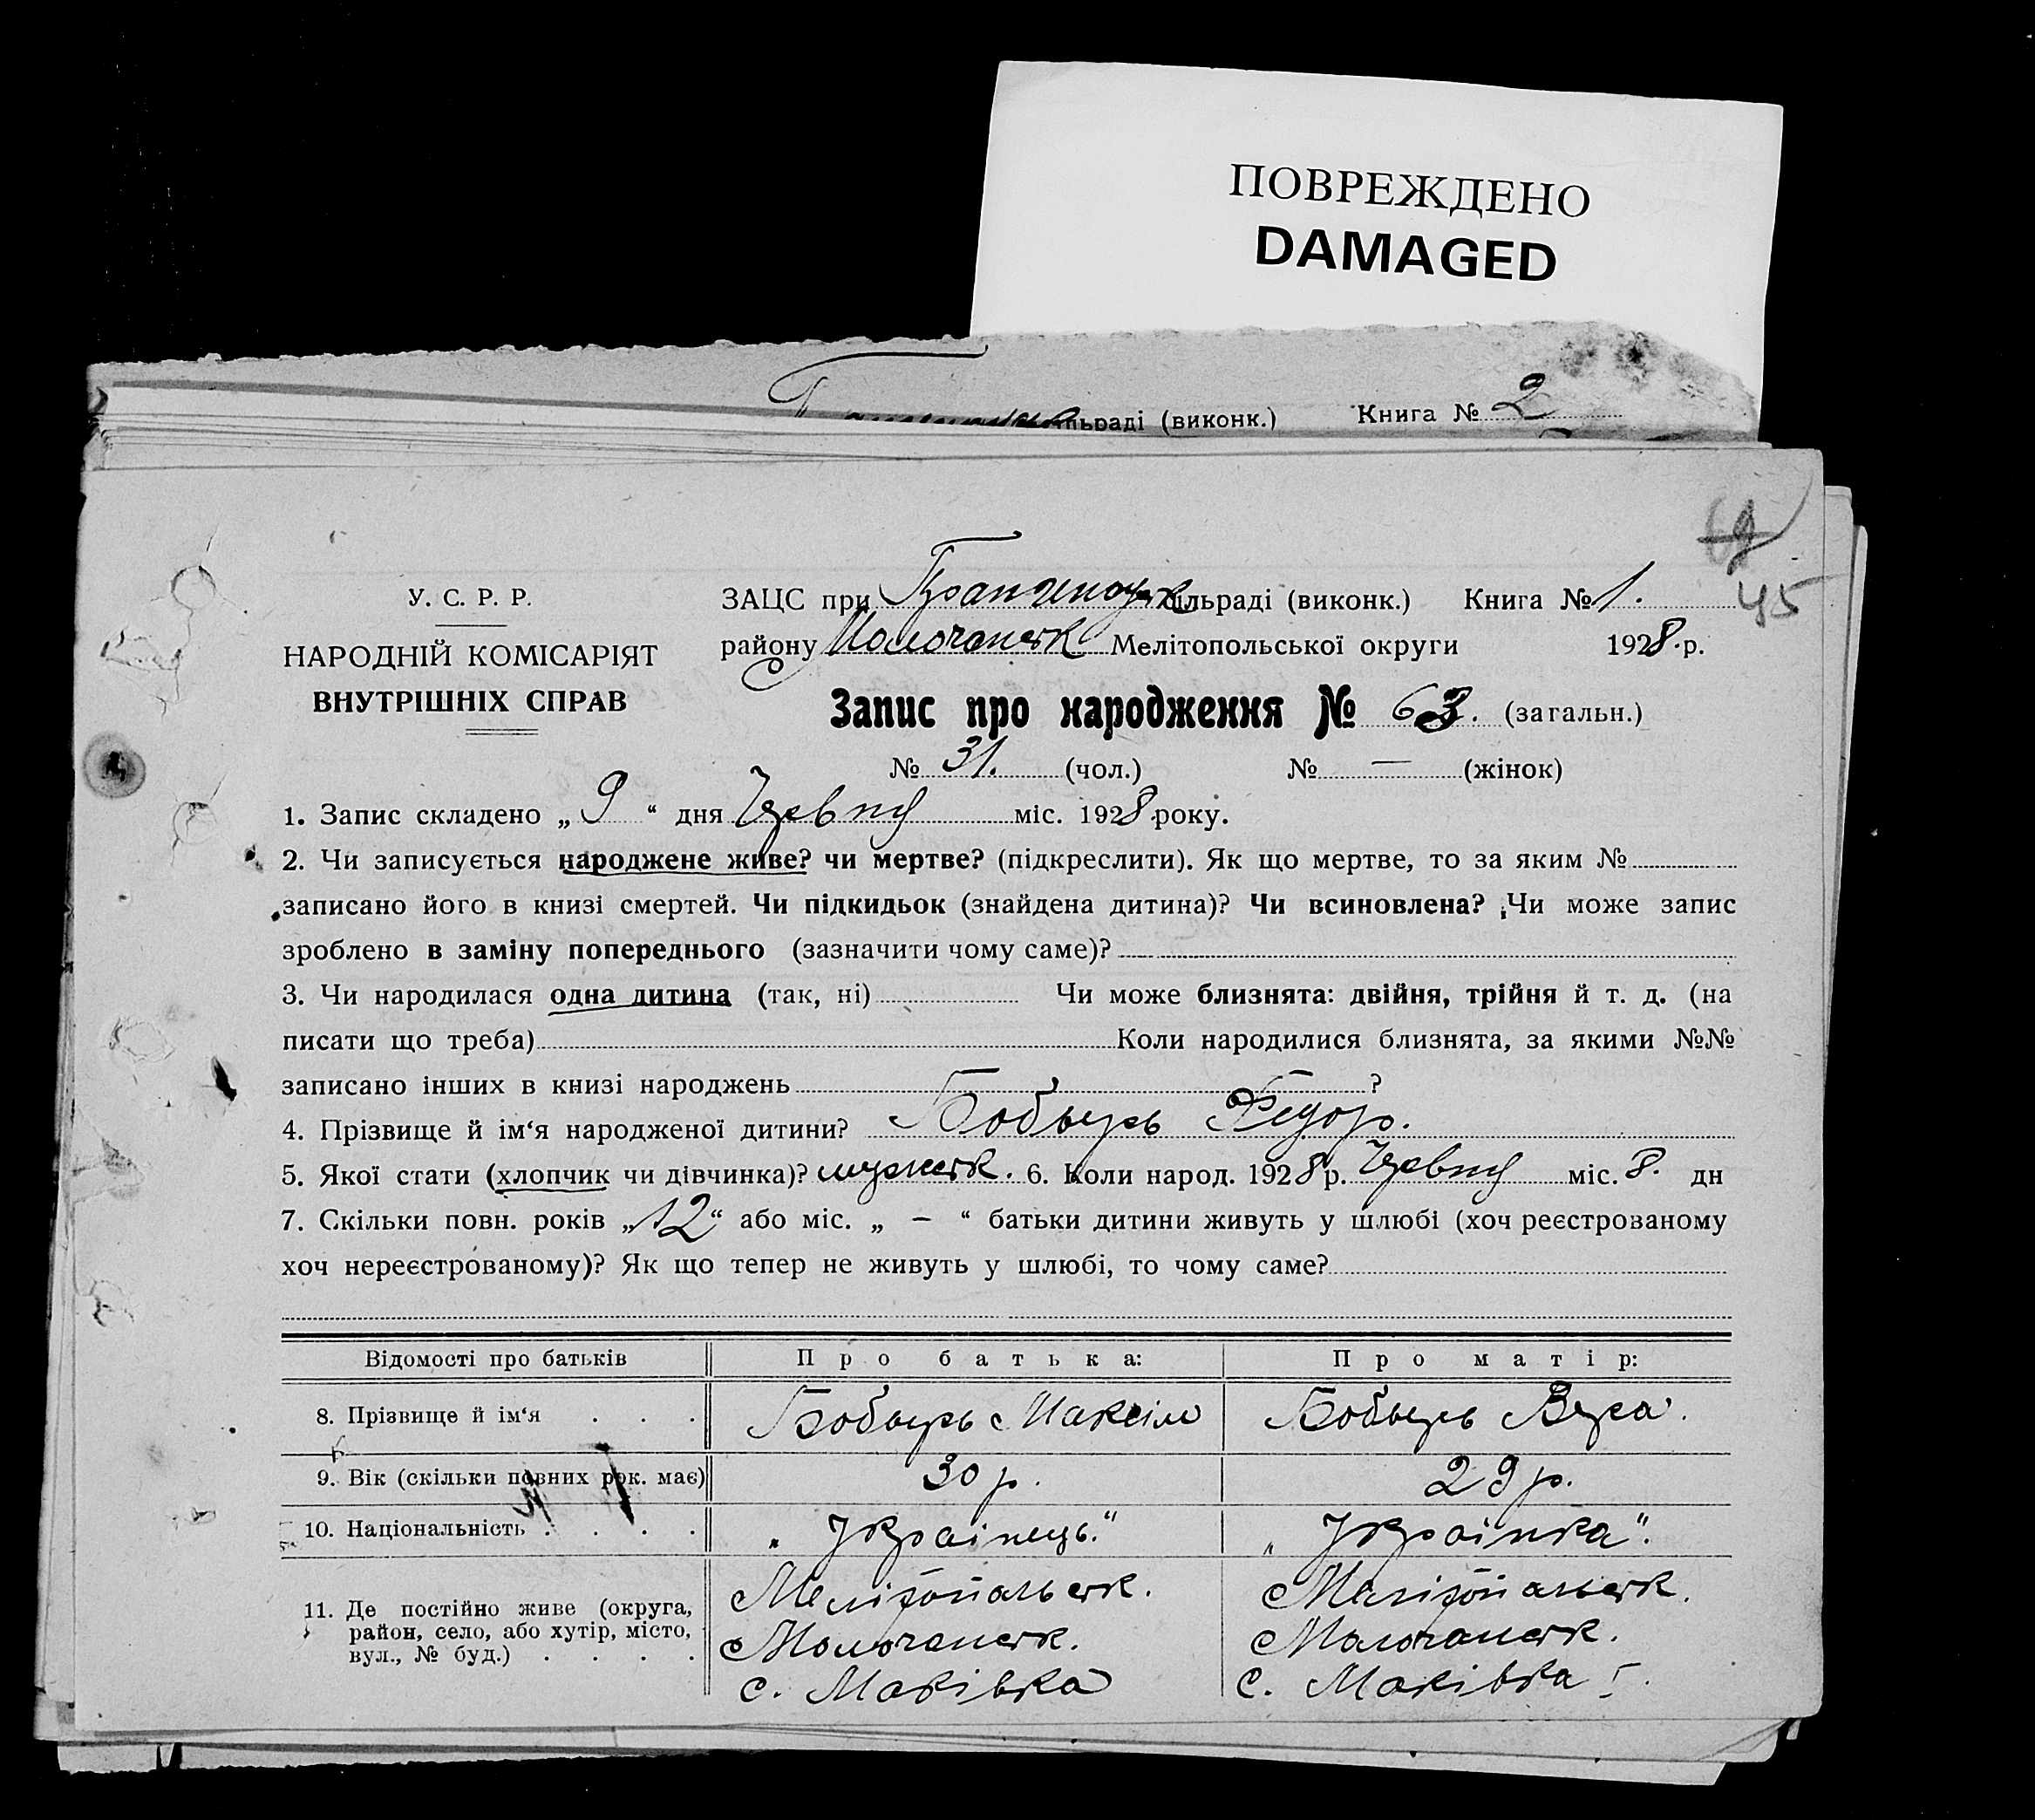 ПОВРЕЖДЕНО
DAMAGED
ільраді (виконк.) Книга № 2
45
У. С. Р. Р.
НАРОДНІЙ КОМІСАРІЯТ
ВНУТРІШНІХ СПРАВ
ЗАЦС при сільраді (виконк.) Книга № 1.
району Молочанськ Мелітопольської округи 1928 р.
Запис про народження № 63. (загальн.)
№ 31. (чол.) № — (жінок)
1. Запис складено „ 9 “ дня Червня міс. 1928 року.
2. Чи записується народжене живе? чи мертве? (підкреслити). Як що мертве, то за яким №
записано його в книзі смертей. Чи підкидьок (знайдена дитина)? Чи всиновлена? Чи може запис
зроблено в заміну попереднього (зазначити чому саме)?
3. Чи народилася одна дитина (так, ні) Чи може близнята: двійня, трійня й т. д. (на
писати що треба) Коли народилися близнята, за якими №№
записано інших в книзі народжень ?
4. Прізвище й ім‘я народженої дитини? Бобырь Федор.
5. Якої стати (хлопчик чи дівчинка)? мужеск. 6. Коли народ. 1928 р. Червня міс. 8. дн
7. Скільки повн. років „12“ або міс. „ – “ батьки дитини живуть у шлюбі (хоч реєстрованому
хоч нереєстрованому)? Як що тепер не живуть у шлюбі, то чому саме?
Відомості про батьків Про батька: Про матір:
8. Прізвище й ім‘я . . . Бобырь Максім Бобырь Вера.
9. Вік (скільки повних рок. має) 30 р. 29 р.
10. Національність . . . . „Українець.“ „Українка“.
11. Де постійно живе (округа, район, село, або хутір, місто, вул., № буд.) . . . .
Мелітопольск. Мелітопольск.
Молочанск. Молочанск.
с. Маківка с. Маківка I.